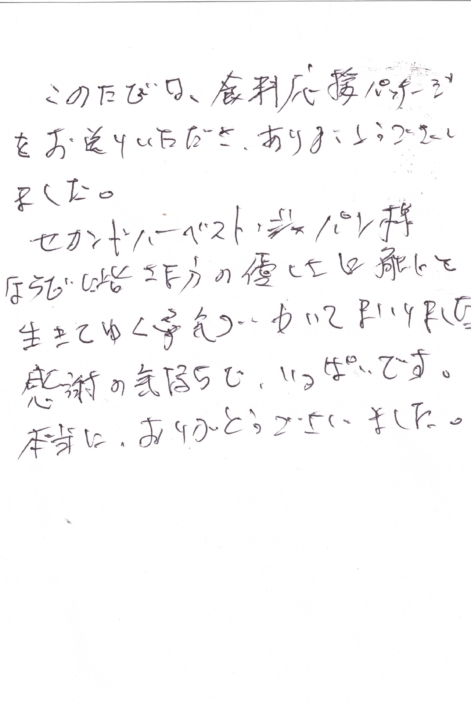 このたびは、食料応援パッケージ
をお送りいただき、ありがとうございい
ました。
セカンドハーベスト・ジャパン様
ならびに皆さま方の優しさに触れて
生きてゆく勇気が わいてまいりました
感謝の気持ちで、いっぱいです。
本当に、ありがとうございました。